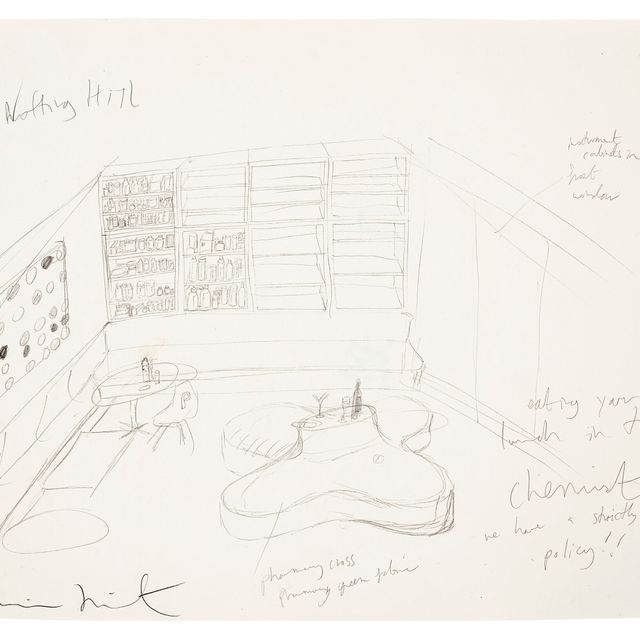 Notting Hill
instrument
cabinets in
front
window
eating your
lunch in
chemist
we have a strictly
policy!!
pharmacy cross
pharmacy green fabric